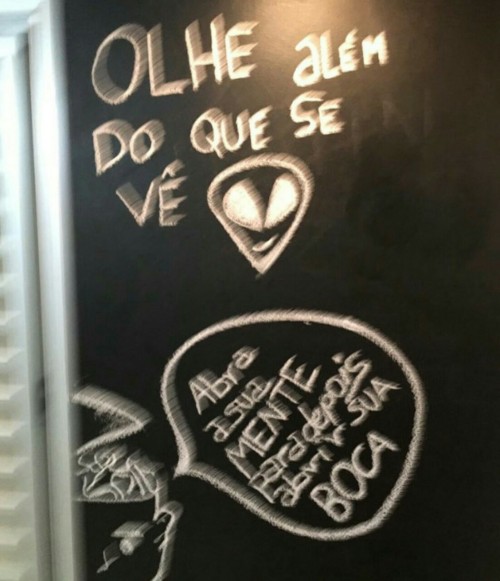 OLHE além
DO QUE SE
VÊ
Abra
a sua
MENTE
para depois
abrir SUA
BOCA